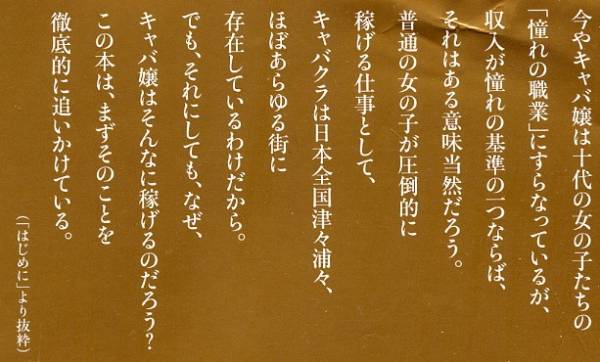 今やキャバ嬢は十代の女の子たちの
「憧れの職業」にすらなっているが、
収入が憧れの基準の一つならば、
それはある意味当然だろう。
普通の女の子が圧倒的に
稼げる仕事として、
キャバクラは日本全国津々浦々、
ほぼあらゆる街に
存在しているわけだから。
でも、それにしても、なぜ、
キャバ嬢はそんなに稼げるのだろう？
この本は、まずそのことを
徹底的に追いかけている。
（「はじめに」より抜粋）